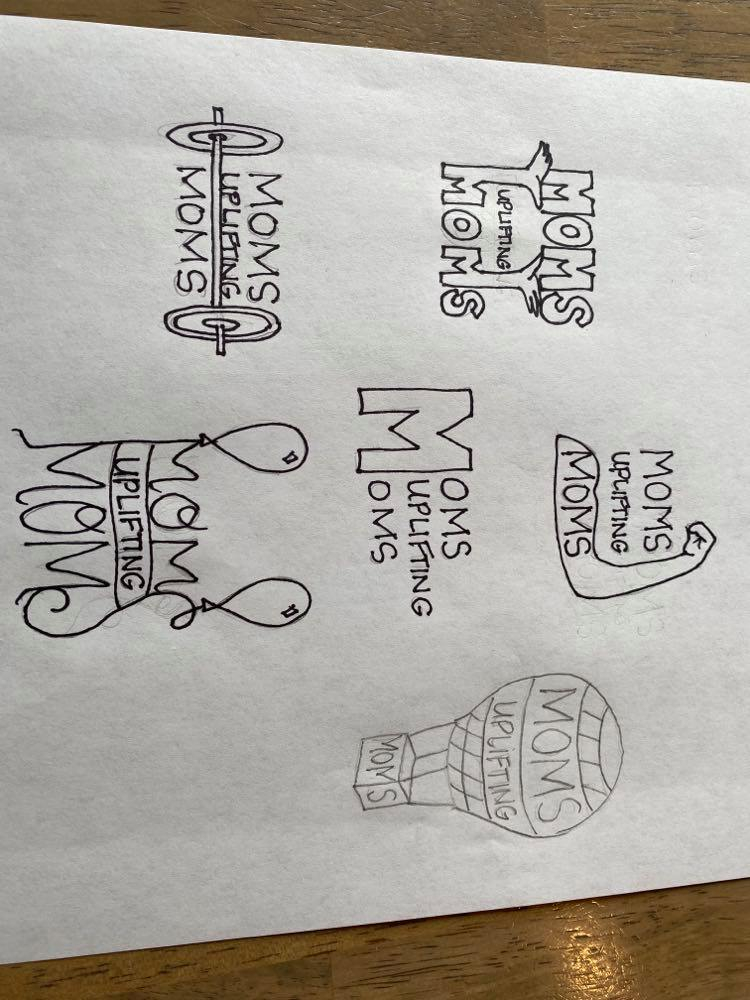 MOMS
UPLIFTING
MOMS
MOMS
UPLIFTING
MOMS
MOMS
UPLIFTING
MOMS
MOMS
UPLIFTING
MOMS
MOMS
UPLIFTING
MOMS
MOMS
UPLIFTING
MOMS